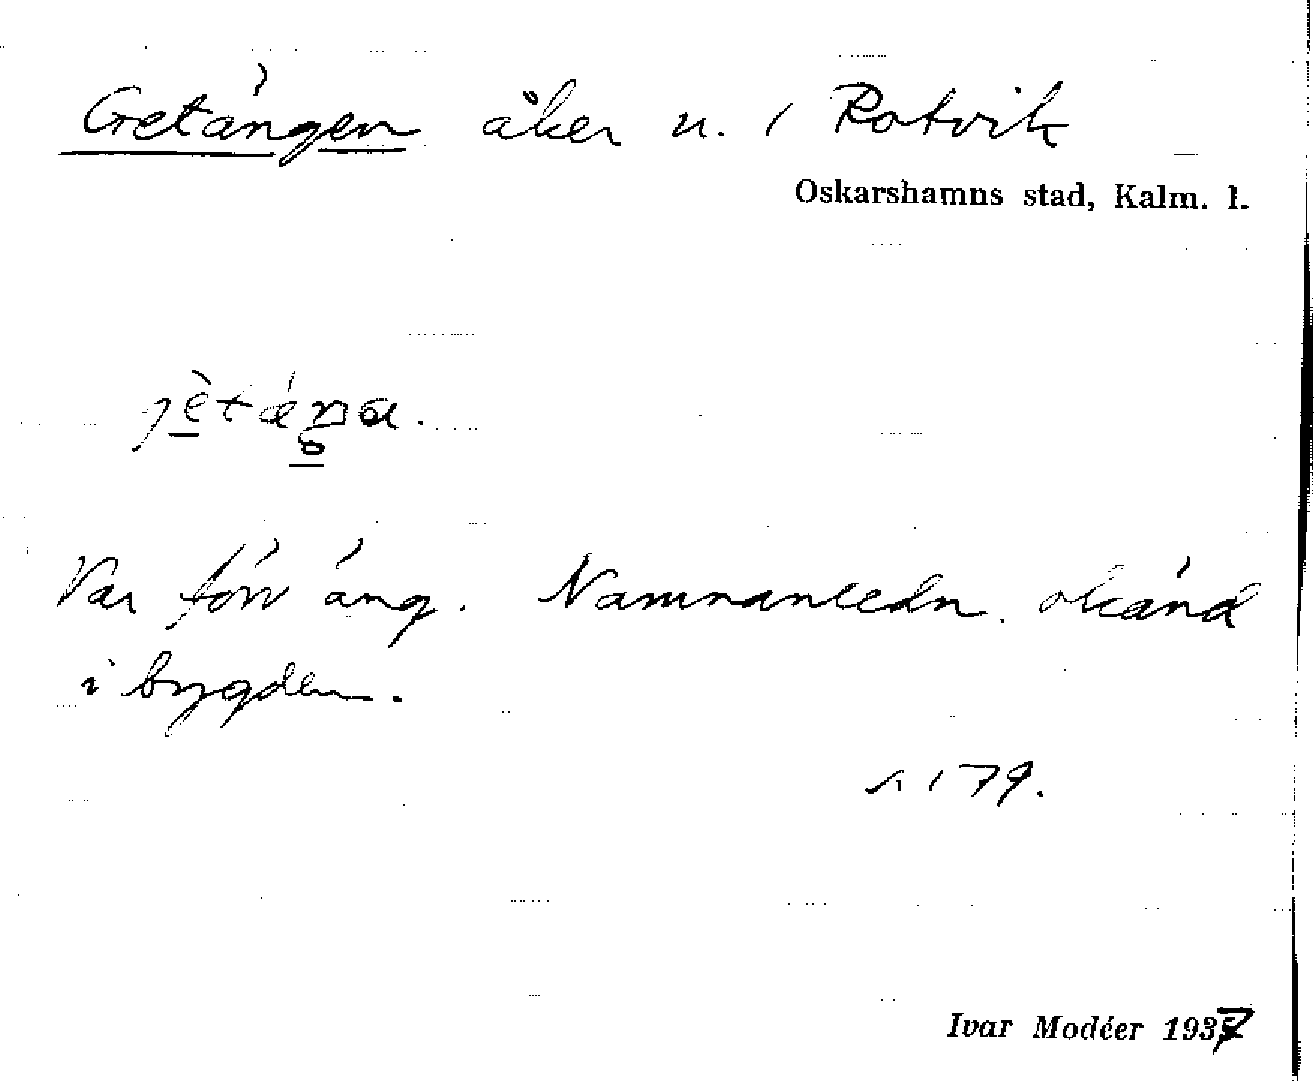 Getängen åker u. / Rotvik
Oskarshamns stad, Kalm. l.
jètäŋa.
Var förr äng. Namnanledn. okänd
i bygden.
n 179.
Ivar Modéer 1937